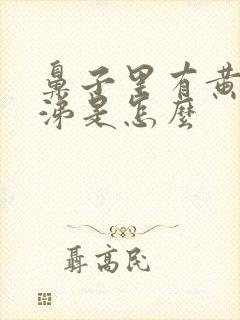 鼻子里有黄
涕是怎麼
聶高民